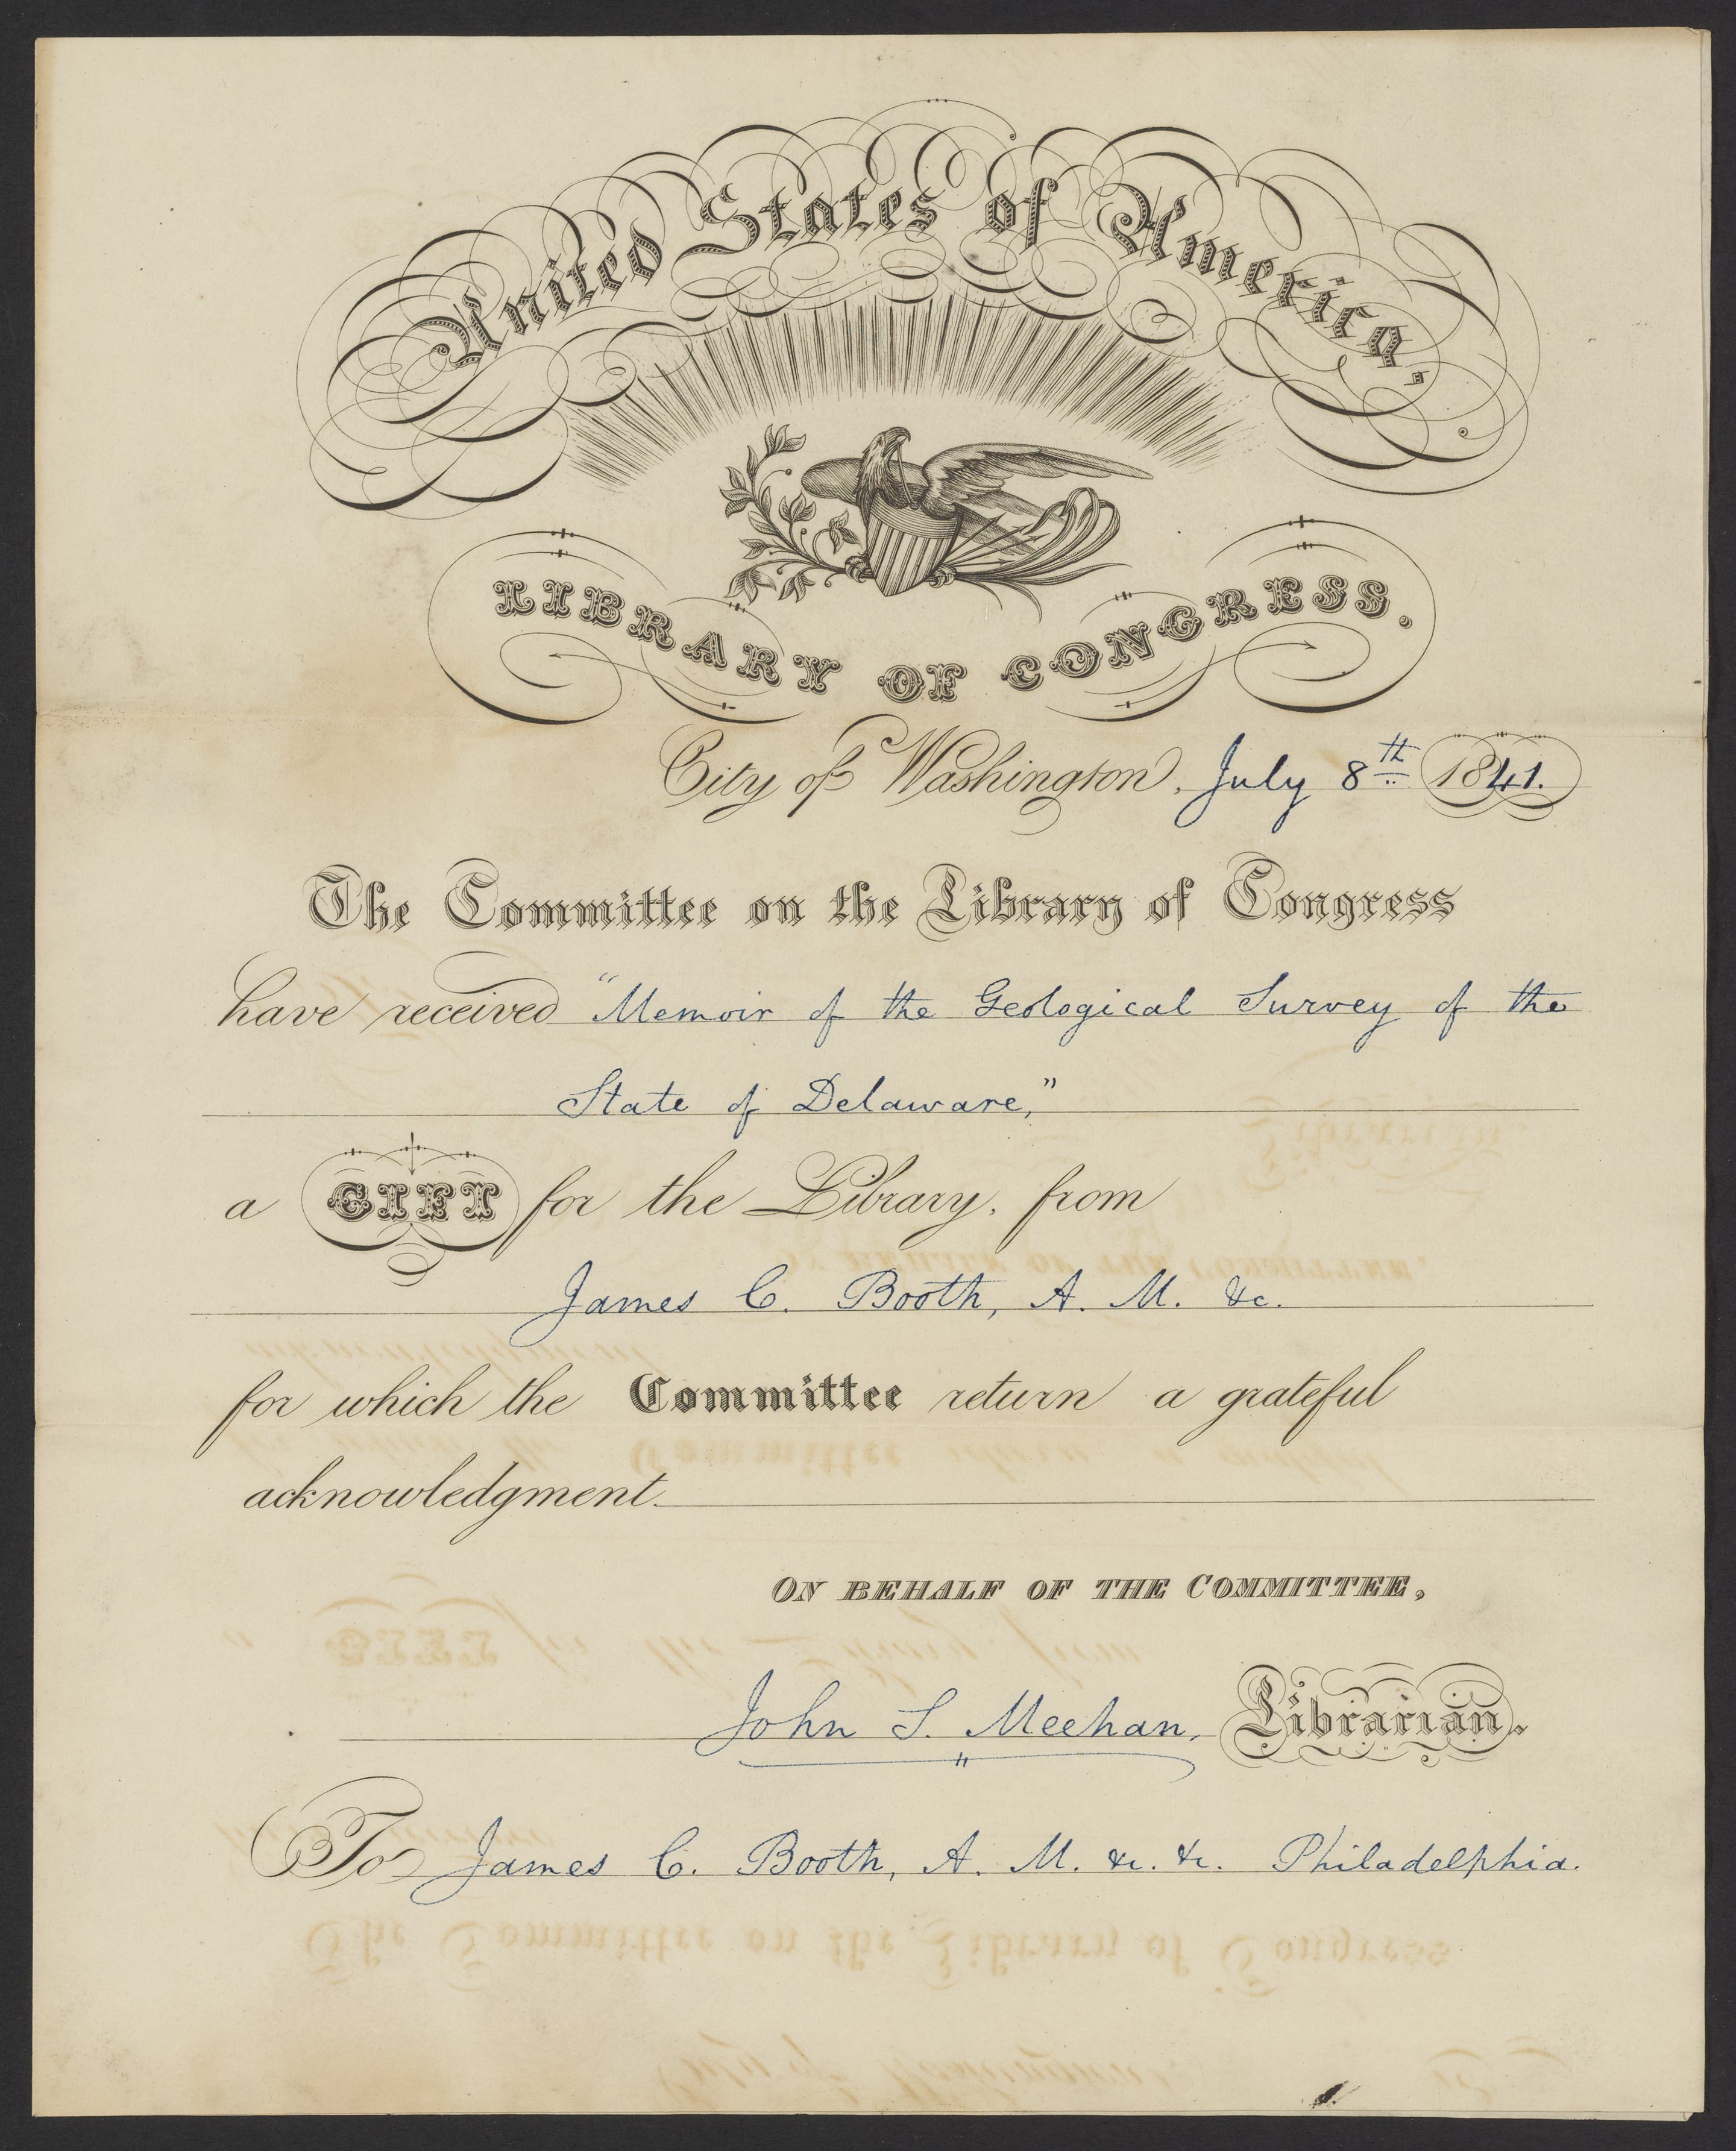 United States of America,
LIBRARY OF CONGRESS.
City of Washington, July 8th 1841.
The Committee on the Library of Congress
have received "Memoir of the Geological Survey of the
State of Delaware,"
a GIFT for the Library, from
James C. Booth, A. M. &c.
for which the Committee return a grateful
acknowledgment.
ON BEHALF OF THE COMMITTEE,
John S. Meehan, Librarian.
To James C. Booth, A. M. &c. &c. Philadelphia.